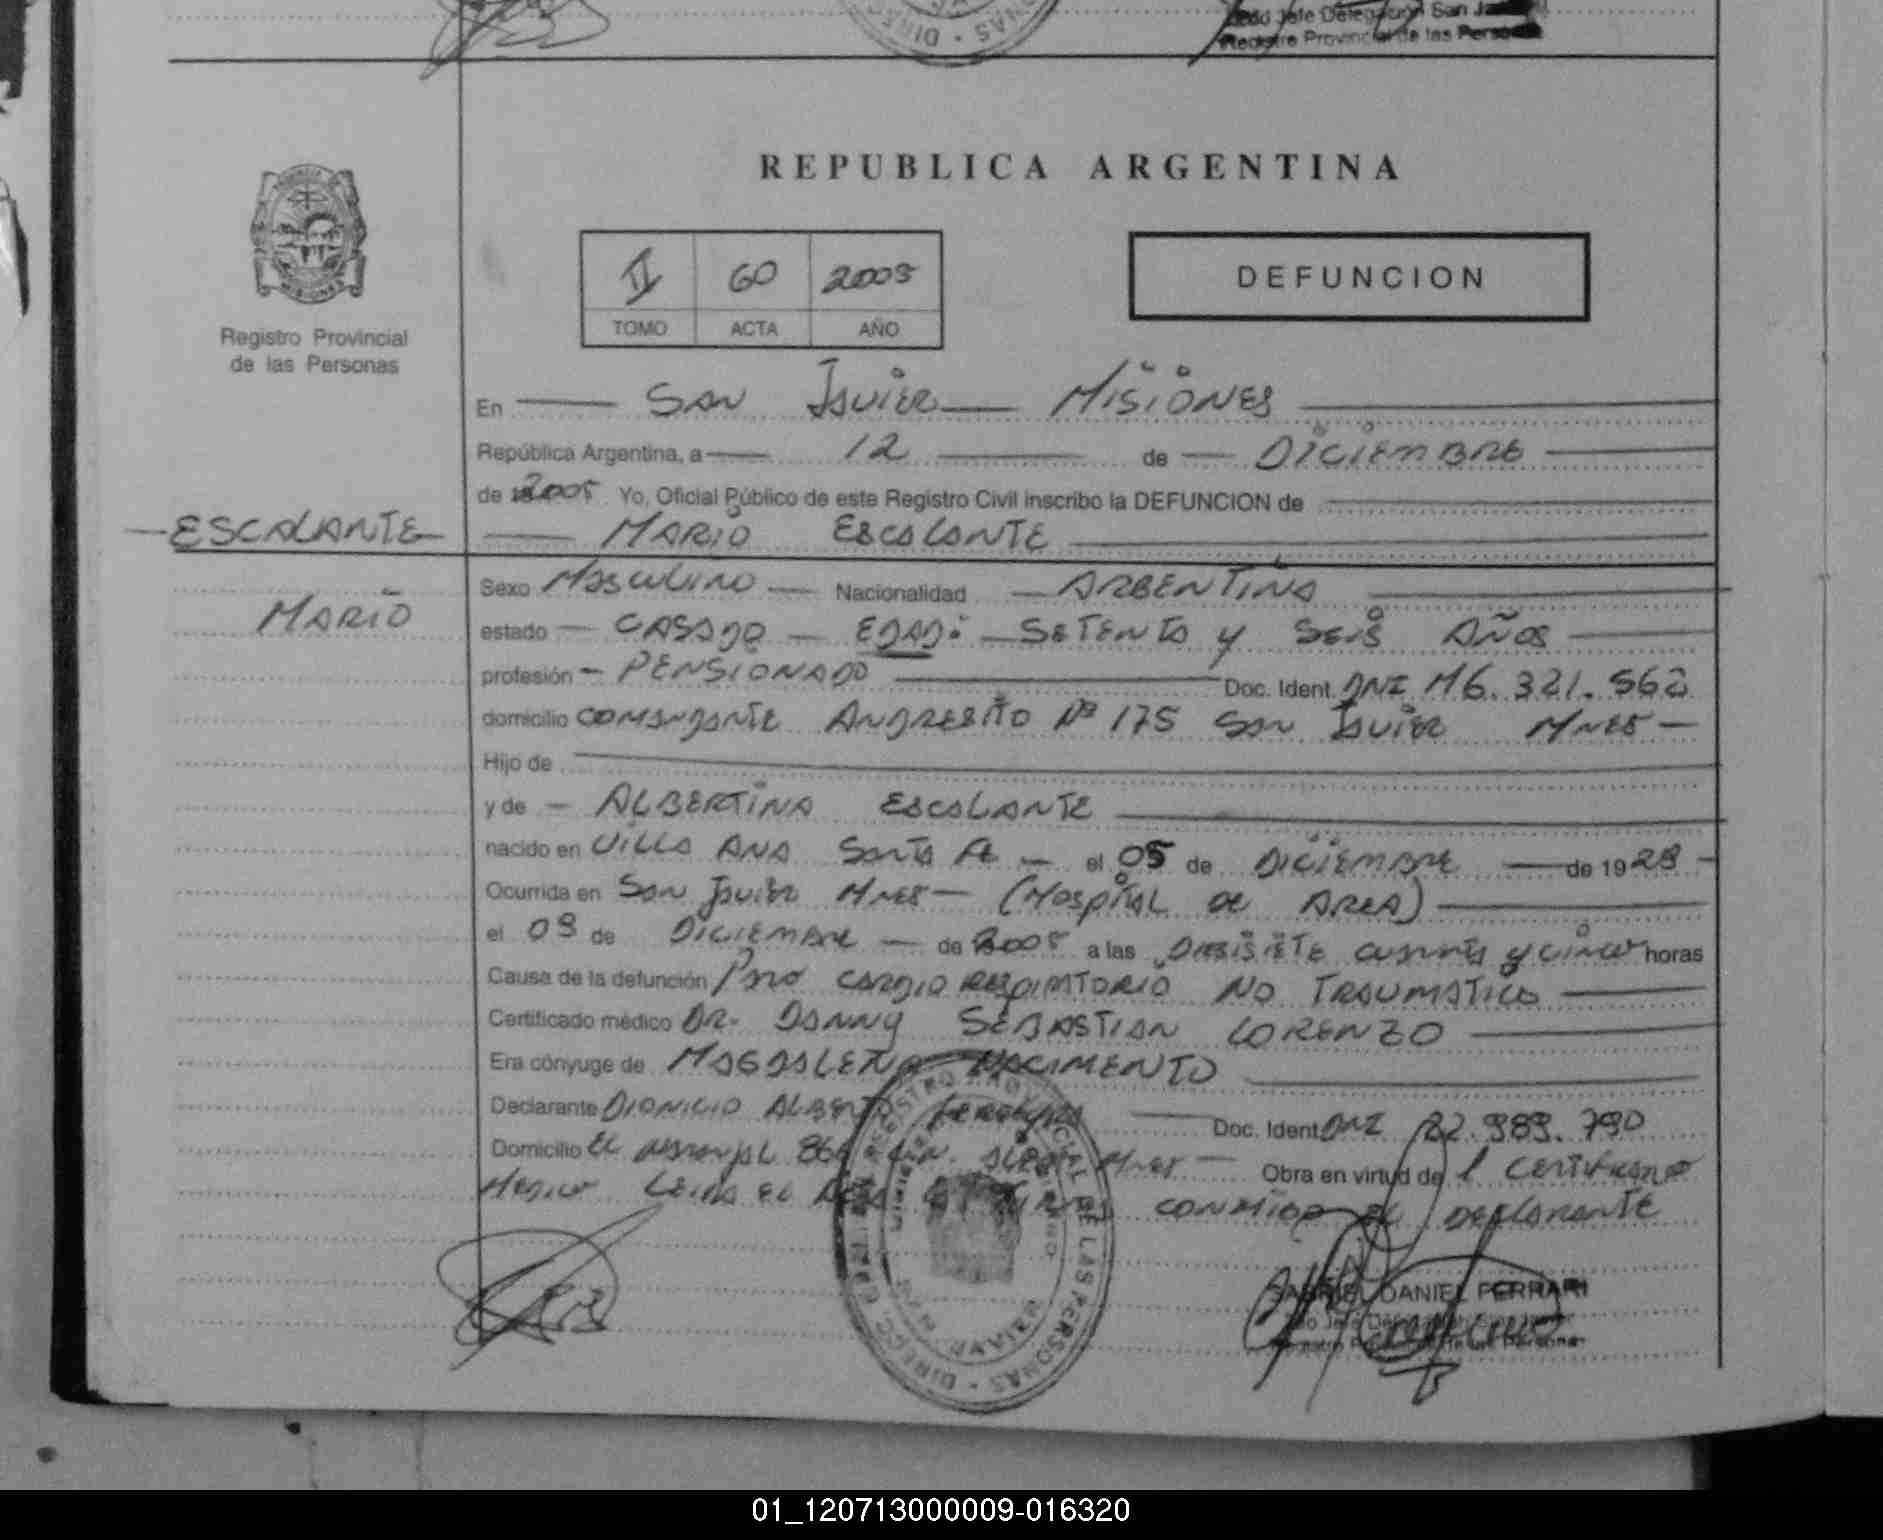 2do Jefe Delegación San Javier
Registro Provincial de las Personas
REPUBLICA ARGENTINA
MISIONES
Registro Provincial
de las Personas
II 60 2005
TOMO ACTA AÑO
DEFUNCION
En San Javier Misiones
República Argentina, a 12 de Diciembre
de 2005 Yo, Oficial Público de este Registro Civil inscribo la DEFUNCION de
ESCALANTE
Mario Escalante
MARIO
Sexo Masculino Nacionalidad Argentina
estado Casado Edad: Setenta y Seis Años
profesión Pensionado Doc. Ident. DNI M6.321.562
domicilio Comandante Andresito Nº 175 San Javier Mnes
Hijo de
y de Albertina Escalante
nacido en Villa Ana Santa Fe el 05 de Diciembre de 1929
Ocurrida en San Javier Mnes (Hospital de Area)
el 09 de Diciembre de 2005 a las Diesisiete cuarenta y cinco horas
Causa de la defunción Paro cardio respiratorio no traumatico
Certificado médico Dr. Danny Sebastian Lorenzo
Era cónyuge de Magdalena Nacimento
Declarante Dionicio Alberto Doc. Ident. DNI 22.989.790
Domicilio El naranjal 866 Mnes Obra en virtud de l certificado
Medico Leida el Acta conmigo el declarante
GABRIEL DANIEL FERRARI
2do Jefe Delegación San Javier
Registro Provincial de las Personas
DIRECC. GRAL. REGISTRO PROVINCIAL DE LAS PERSONAS
SAN JAVIER
01_120713000009-016320